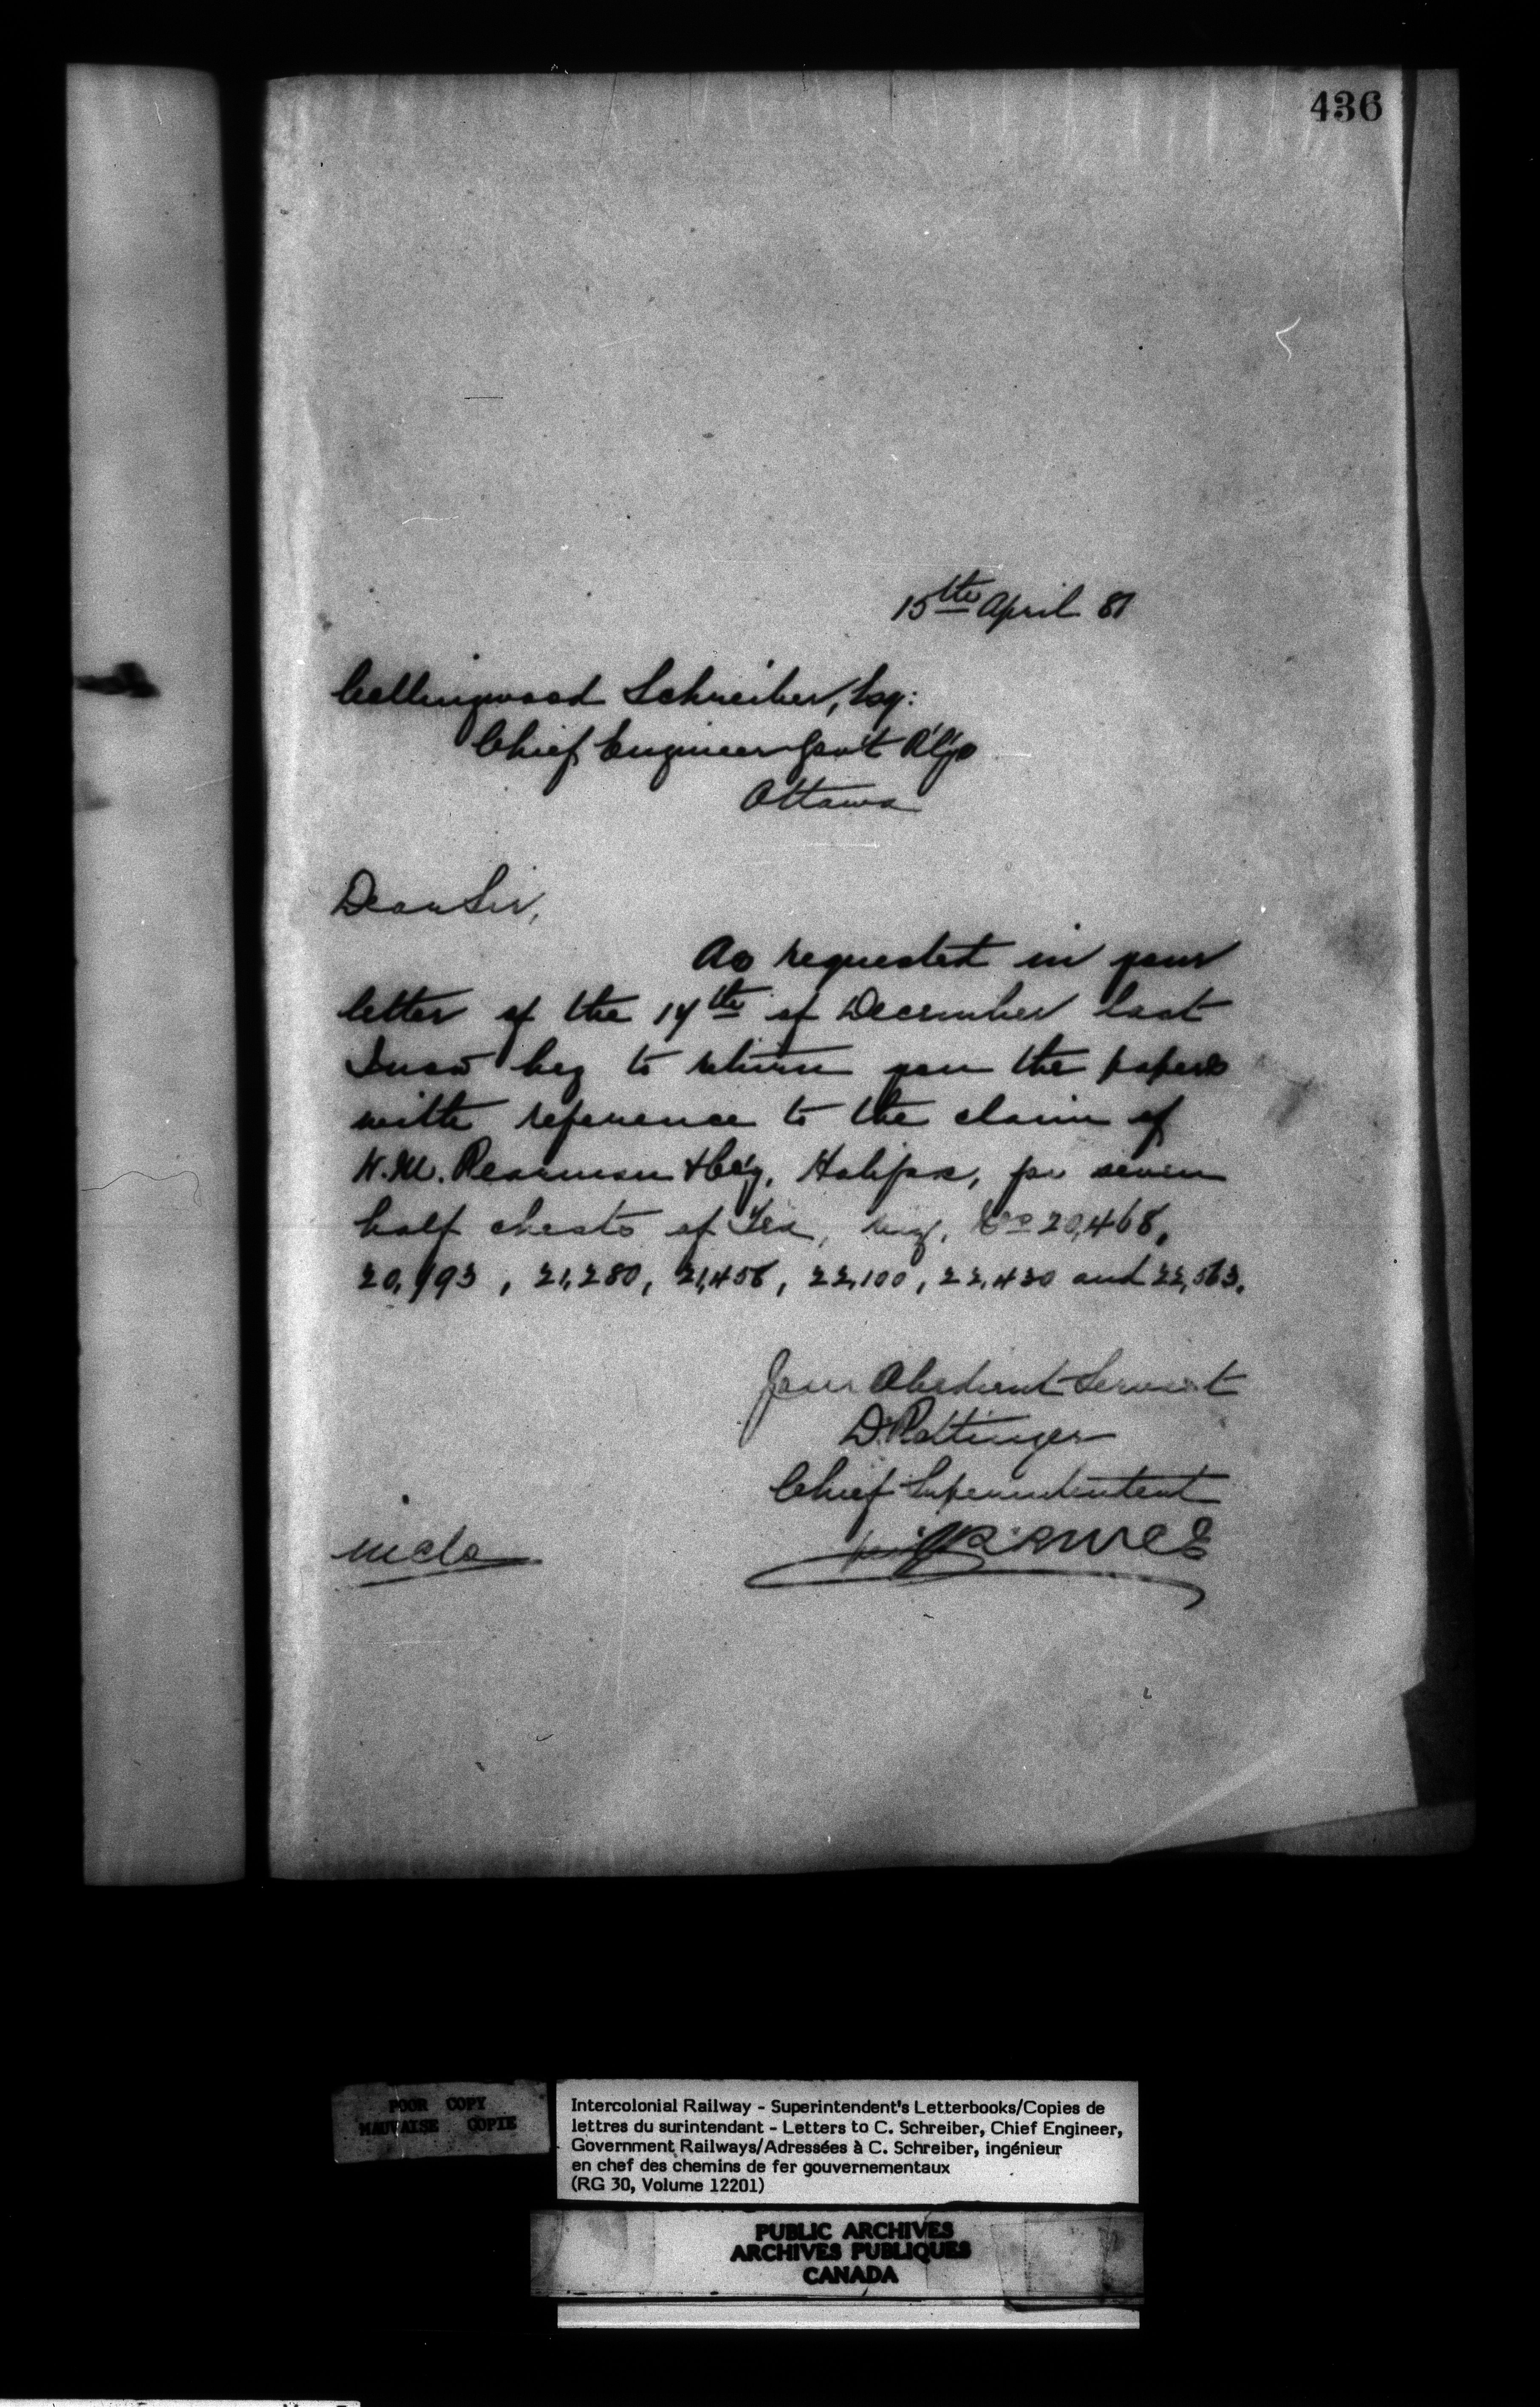 436
15th April 87
Collingwood Schreiber, Esq:
Chief Engineer Gov't R'l'ys
Ottawa
Dear Sir,
As requested in your
letter of the 14th of December last
I now beg to return you the papers
with reference to the claim of
W.M. Pearman & Co'y, Halifax, for seven
half chests of Tea, Nos 20,468,
20,993, 21,280, 21,458, 22,100, 22,430 and 22,563.
Your Obedient Servant
D. Pottinger
Chief Superintendent
incls
POOR COPY
MAUVAISE COPIE
Intercolonial Railway - Superintendent's Letterbooks/Copies de
lettres du surintendant - Letters to C. Schreiber, Chief Engineer,
Government Railways/Adressées à C. Schreiber, ingénieur
en chef des chemins de fer gouvernementaux
(RG 30, Volume 12201)
PUBLIC ARCHIVES
ARCHIVES PUBLIQUES
CANADA